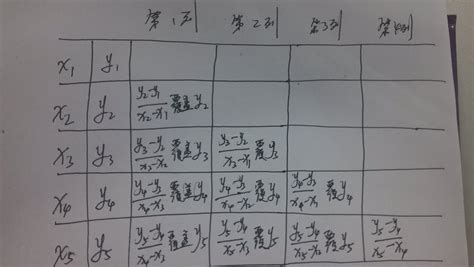 第1列 第2列 第3列 第4列
x₁ y₁
x₂ y₂ (y₂-y₁)/(x₂-x₁) 覆盖y₂
x₃ y₃ (y₃-y₂)/(x₃-x₂) 覆盖y₃ (y₃-y₂)/(x₃-x₁) 覆y₃
x₄ y₄ (y₄-y₃)/(x₄-x₃) 覆盖y₄ (y₄-y₃)/(x₄-x₂) 覆y₄ (y₄-y₃)/(x₄-x₁) 覆y₄
x₅ y₅ (y₅-y₄)/(x₅-x₄) 覆盖y₅ (y₅-y₄)/(x₅-x₃) 覆y₅ (y₅-y₄)/(x₅-x₂) 覆y₅ (y₅-y₄)/